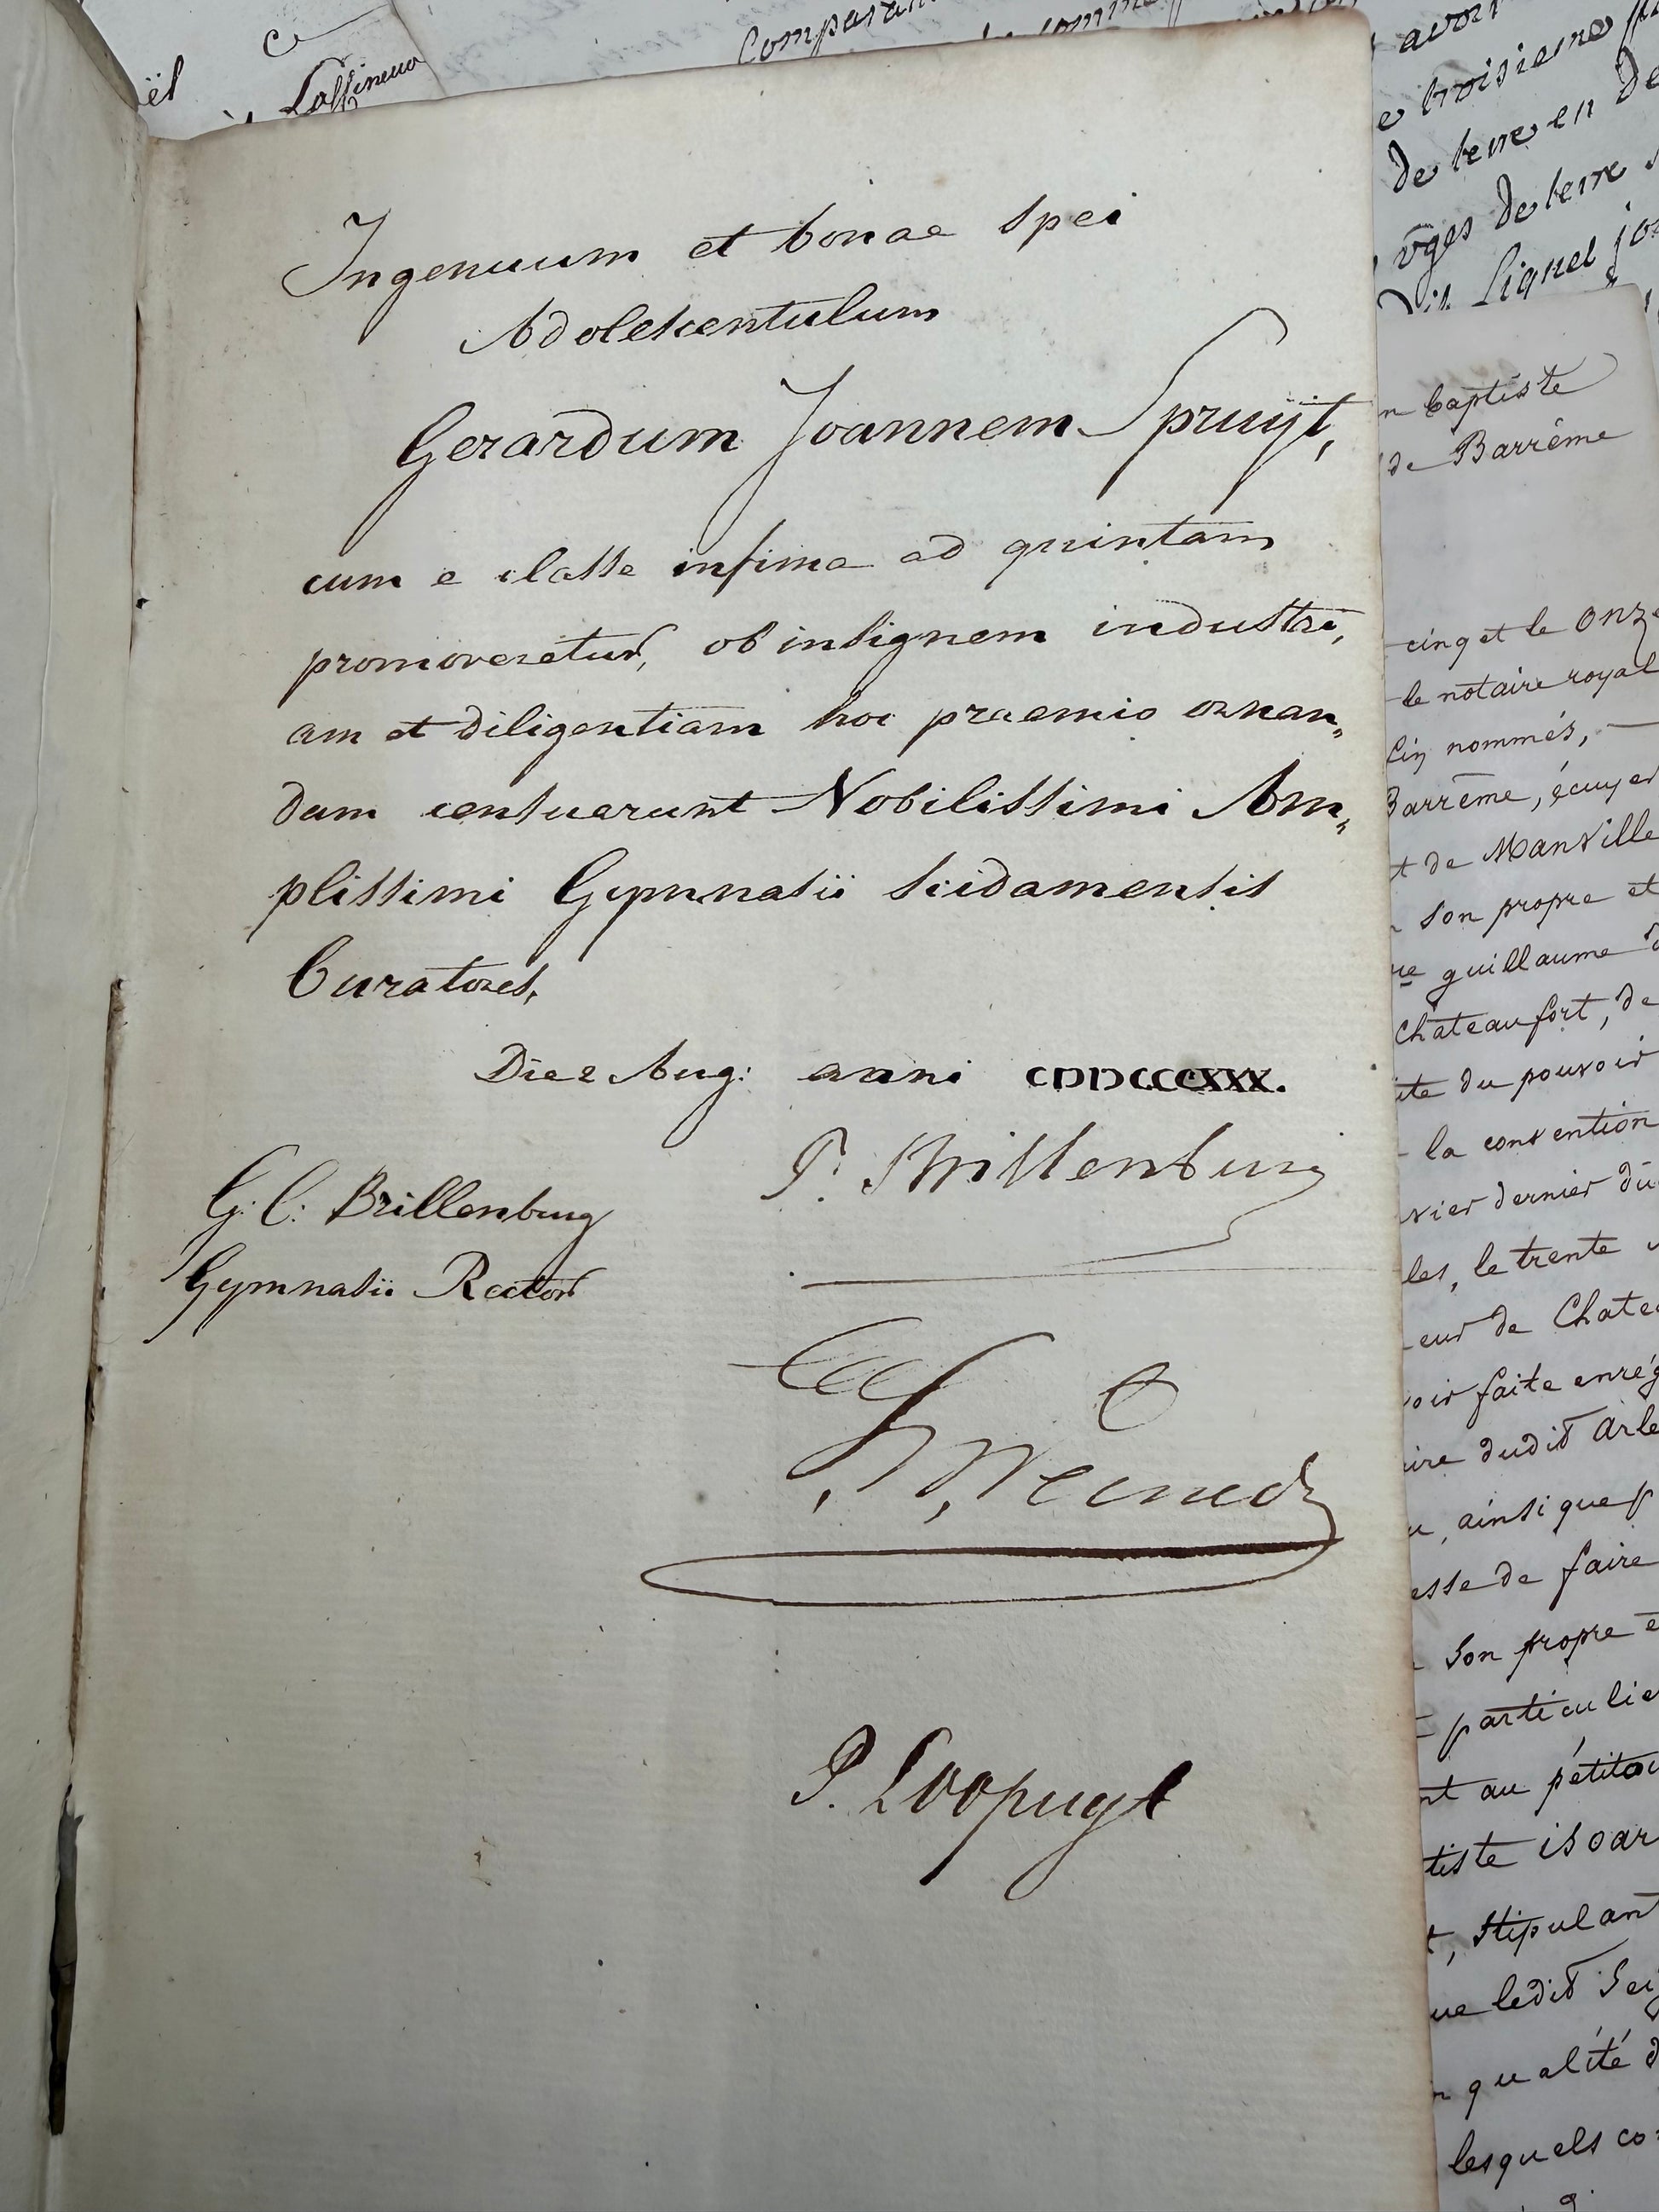 Ingenuum et bonae spei
Adolescentulum
Gerardum Joannem Spruijt,
cum e classe infima ad quintam
promoveretur, ob insignem industri,
am et diligentiam hoc praemio ornan„
dum censuerunt Nobilissimi Am„
plissimi Gymnasii Sciedamensis
Curatores,
Die 2 Aug: anni CIƆIƆCCCXXX.
G. C. Brillenburg
Gymnasii Rector
P. Brillenburg
P. Loopuyt
Comparant
Lassineua
avoir
e troisieme
de terre en de
oges de terre
dit Lignel
n baptiste
de Barrême
cinq et le onze
le notaire royal
nommés,
Barrême, écuyer
t de Manville
son propre et
guillaume
Chateaufort, de
ite du pouvoir
la convention
vier dernier du
les, le trente
eur de Chatea
oir faite enrég
ire dudit arle
ainsi que
esse de faire
son propre e
particulie
nt au pétito
tiste isoar
t, stipulant
ue ledit Sei
n qualité d
lesquels co